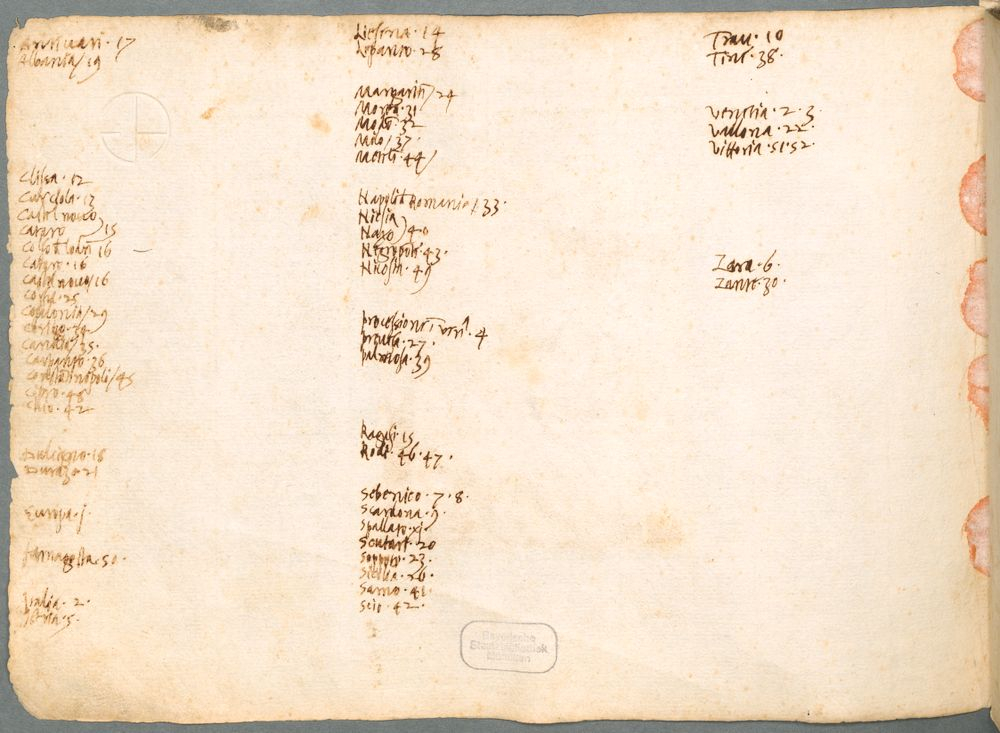 Antiuari · 17
Albania / 19
Clissa · 12
Curzola · 13
Castel nouo
Cataro ) 15
16
Cataro · 16
Castel nouo / 16
Corfu · 25
29
Cerigo · 34
Candia / 35
Scarpanto · 36
Constantinopoli / 45
Cipro · 48
Chio · 42
Dulcigno · 18
Durazo · 21
Europa · j
Famagosta · 50 ·
Italia · 2 ·
Istria · 5 ·
Liesena · 14
Lepanto · 28
Margariti / 24
Morea · 31
Modon · 32
Milo / 37 ·
44 /
Napoli d Romania / 33 ·
Nicsia
Naxo ) 40
Negroponte · 43 ·
Nicosia · 49
processione 4
preuesa · 27 ·
palmosa · 39
Ragusi · 15
Rodi · 46 · 47 ·
Sebenico · 7 · 8 ·
Scardona · 9
Spallato · xj ·
Scutari · 20
Soppoto · 23 ·
Sicilia · 26 ·
Samo · 41 ·
Scio · 42 ·
Trau · 10
Tine · 38 ·
Venetia · 2 · 3 ·
Vallona · 22 ·
Vittoria · 51 · 52 ·
Zara · 6 ·
Zante · 30 ·
Bayerische
Staatsbibliothek
München